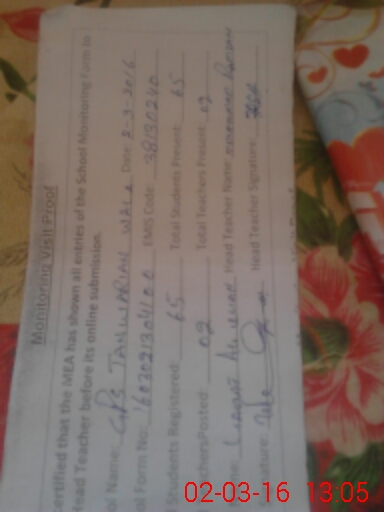 Monitoring Visit Proof
certified that the MEA has shown all entries of the School Monitoring Form to
Head Teacher before its online submission.
ol Name: GPS TANWARIAN WALA Date: 2-3-2016
ol Form No: 160302130410 EMIS Code: 38130240
l Students Registered: 65 Total Students Present: 65
TeachersPosted: 02 Total Teachers Present: 02
me: Head Teacher Name:
Signature: Head Teacher Signature:
02-03-16 13:05